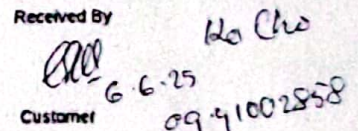 Received By
Ko Cho
6.6.25
Customer
09.41002858